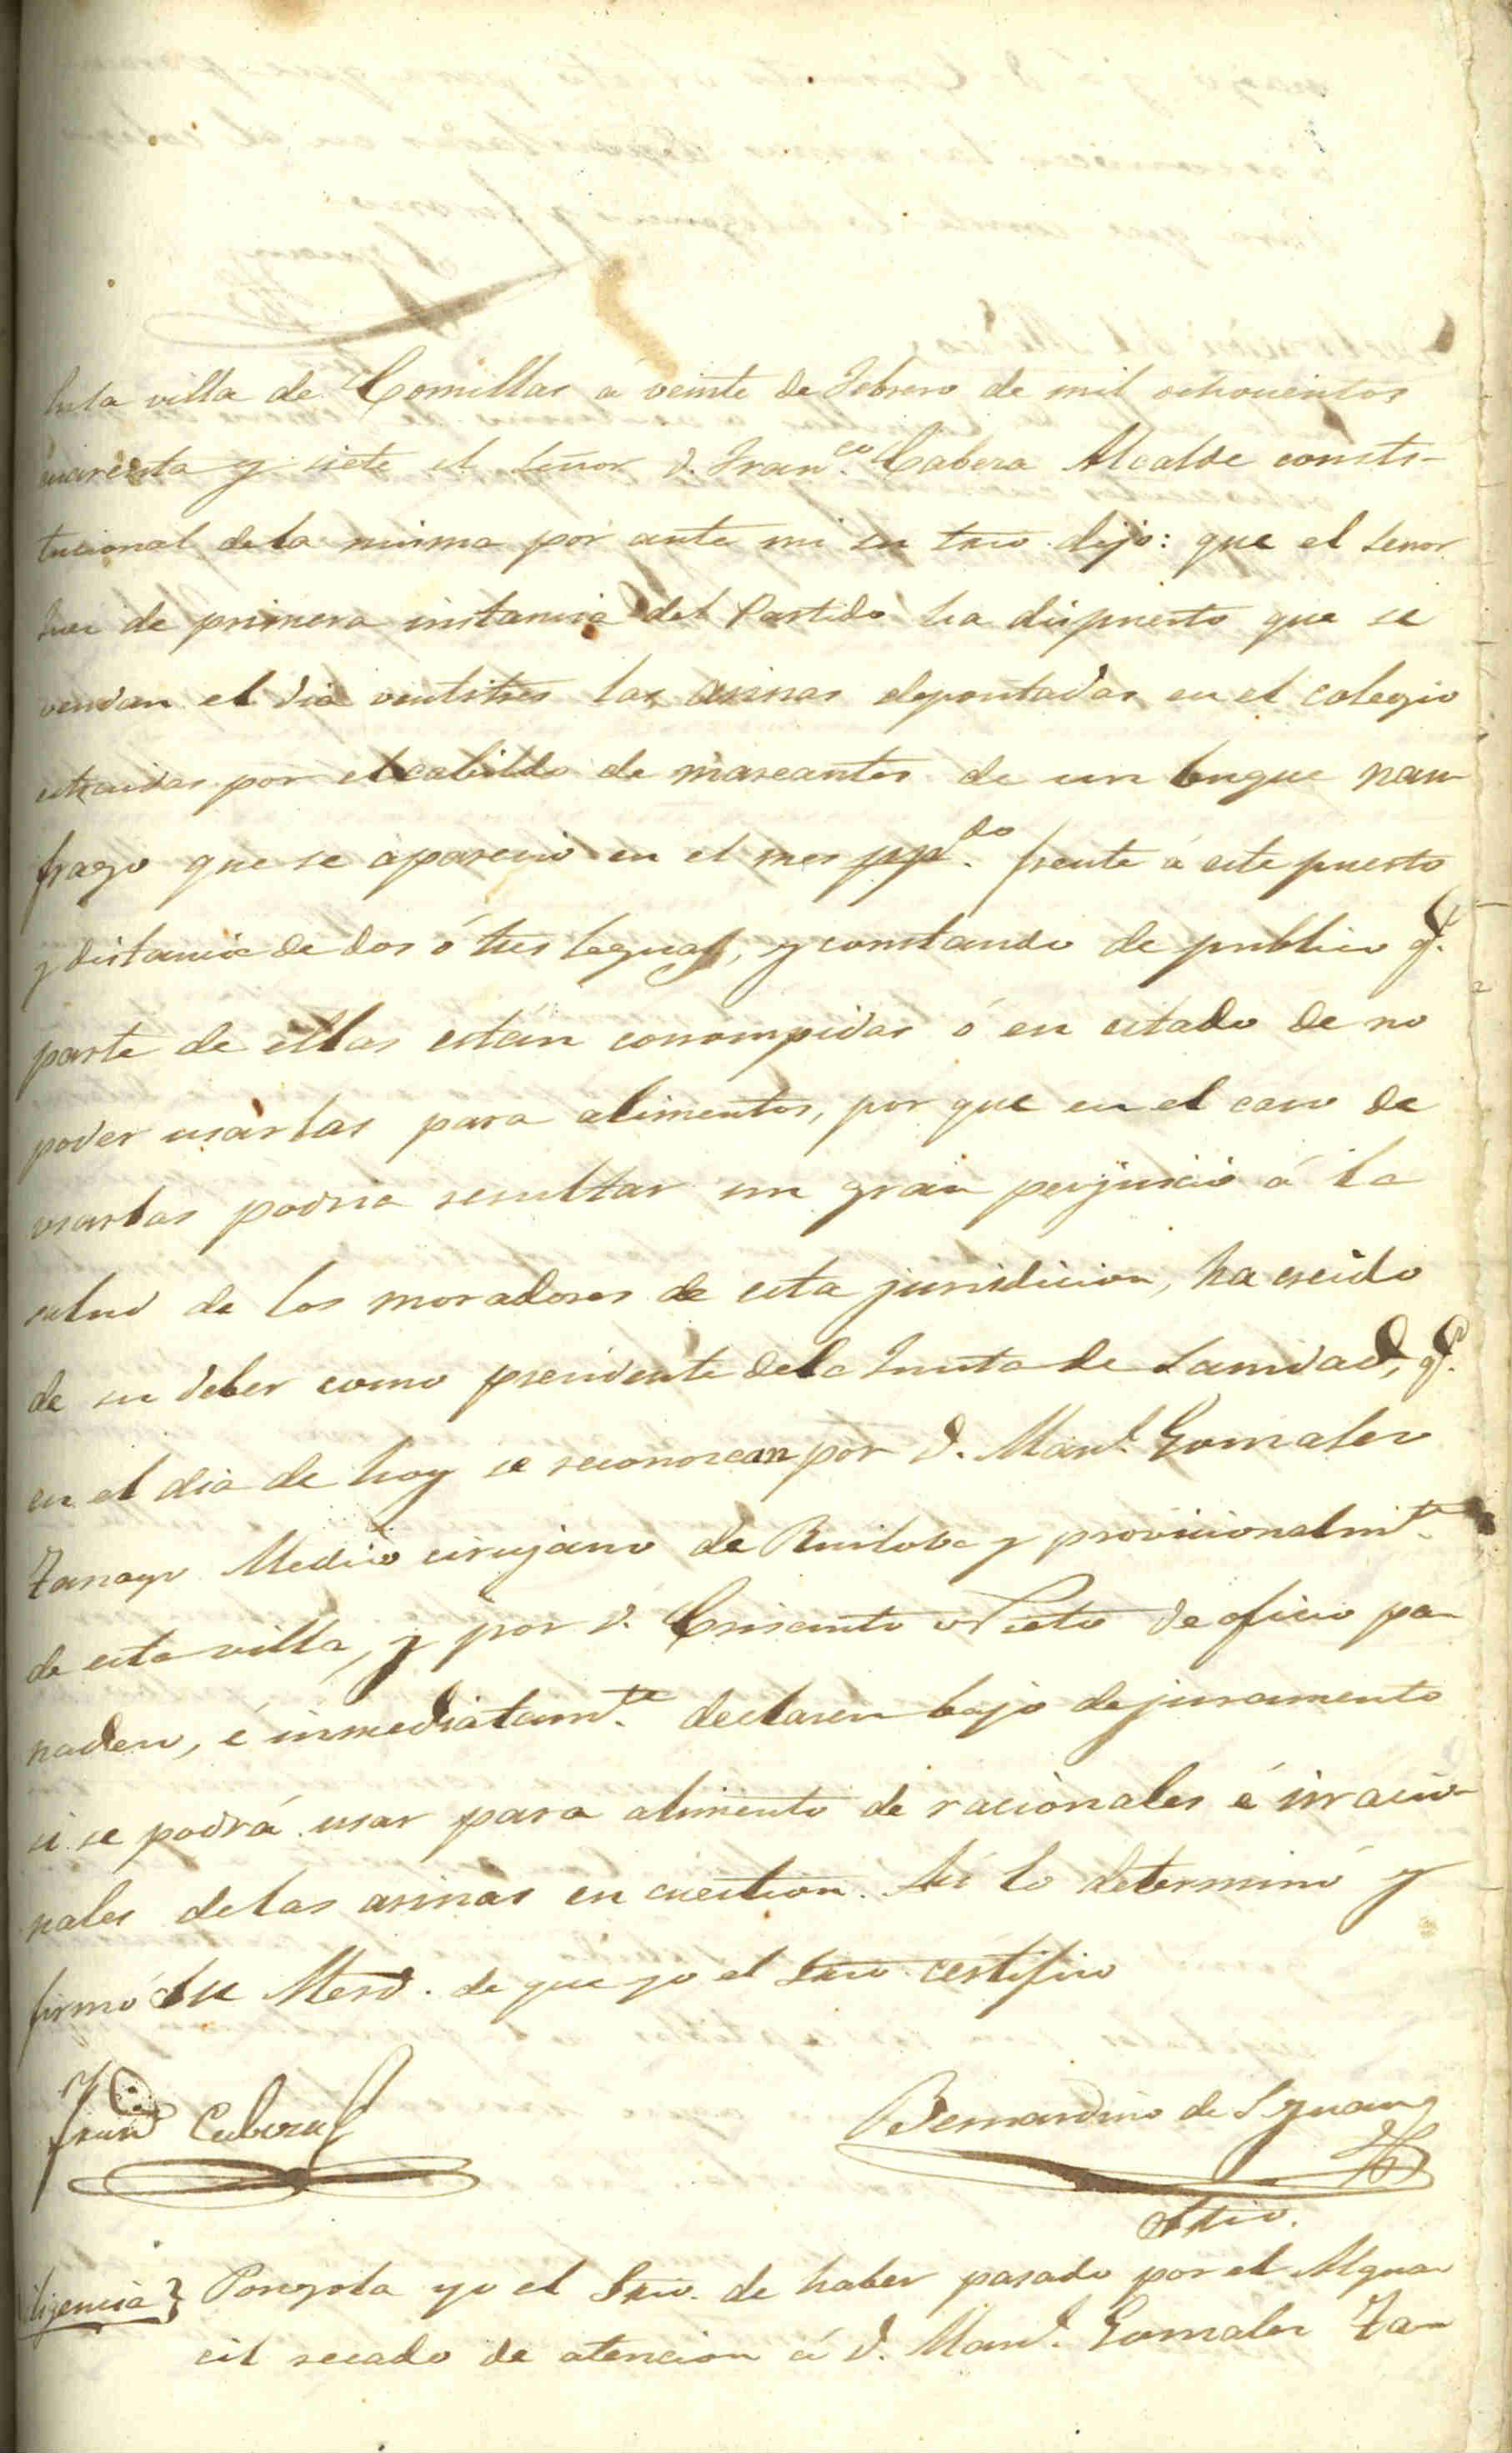 En la villa de Comillas á veinte de Febrero de mil ochocientos
cuarenta y siete el señor D. Franco. Cabeza Alcalde consti-
tucional dela misma por ante mi su Srio. dijo: que el señor
Juez de primera instancia del Partido ha dispuesto que se
vendan el dia veintitres las arinas depositadas en el colegio
extraidas por el cabildo de mareantes de un buque nau-
frago que se aparecio en el mes ppdo. frente á este puerto
y distancia de dos ó tres leguas, y constando de publico q.
parte de ellas están corrompidas ó en estado de no
poder usarlas para alimentos, por que en el caso de
usarlas podria resultar un gran perjuicio á la
salud de los moradores de esta jurisdicion, ha creido
de su deber como presidente dela Junta de Sanidad, q.
en el dia de hoy se reconozcan por D. Manl. Gonzalez
Tanago Medico cirujano de Ruiloba y provicionalmte.
de esta villa, y por D. Crisanto Nieto de oficio pa-
nadero, é inmediatamte. declaren bajo de juramento
si se podrá usar para alimento de racionales é irracio-
nales delas arinas en cuestion. Asi lo determinó y
firmó Su Merd. de que yo el Srio. certifico
Franco Cabeza
Bernardino de Yguanz
Srio.
Diligencia} Pongola yo el Srio. de haber pasado por el Algua-
cil recado de atencion á D. Manl. Gonzalez Ta-